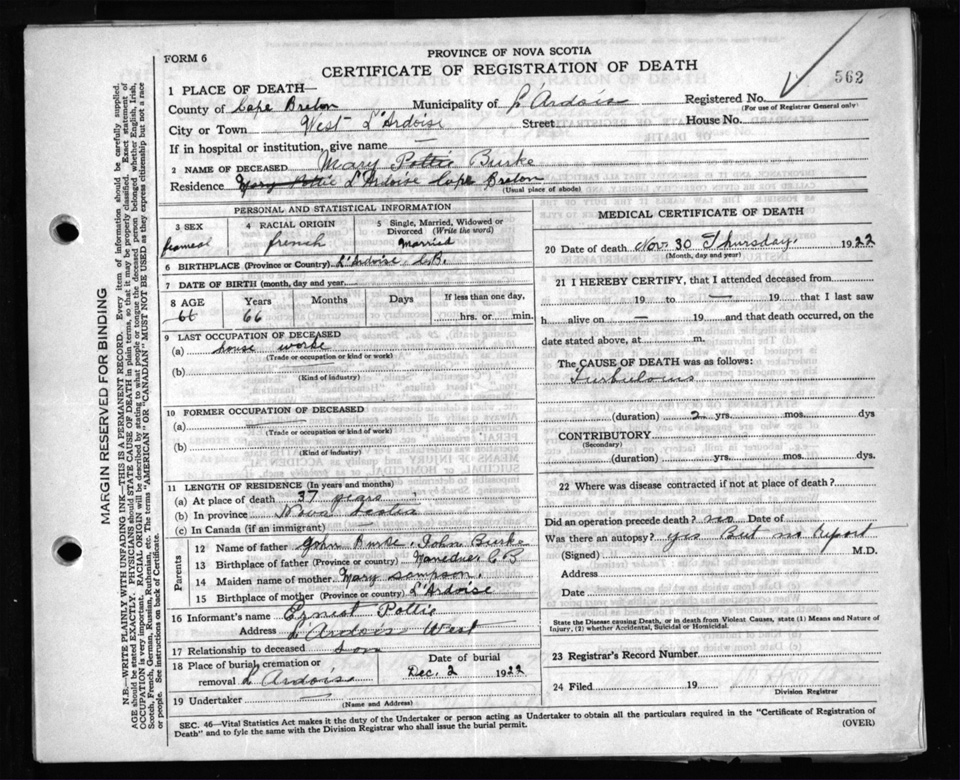 FORM 6
PROVINCE OF NOVA SCOTIA
CERTIFICATE OF REGISTRATION OF DEATH
562
1 PLACE OF DEATH—
County of Cape Breton Municipality of L'Ardois Registered No.
(For use of Registrar General only)
City or Town West L'Ardoise Street House No.
If in hospital or institution, give name
2 NAME OF DECEASED Mary Pottie Burke
Residence Mary Pottie L'Ardoise Cape Breton
(Usual place of abode)
PERSONAL AND STATISTICAL INFORMATION
3 SEX 4 RACIAL ORIGIN 5 Single, Married, Widowed or Divorced (Write the word)
french Married
6 BIRTHPLACE (Province or Country) L'Ardoise C.B.
7 DATE OF BIRTH (month, day and year)
8 AGE Years Months Days If less than one day,
66 66 hrs. or min.
9 LAST OCCUPATION OF DECEASED
(a) house worke
(Trade or occupation or kind or work)
(b)
(Kind of industry)
10 FORMER OCCUPATION OF DECEASED
(a)
(Trade or occupation or kind or work)
(b)
(Kind of industry)
11 LENGTH OF RESIDENCE (In years and months)
(a) At place of death 37 years
(b) In province Nova Scotia
(c) In Canada (if an immigrant)
Parents
12 Name of father John Burke. John Burke
13 Birthplace of father (Province or Country) C B
14 Maiden name of mother Mary Simpson.
15 Birthplace of mother (Province or country) L'Ardoise
16 Informant's name Ernest Pottie
Address L'Ardois West
17 Relationship to deceased Son
18 Place of burial, cremation or removal L'Ardois
Date of burial
Dec. 2 1922
19 Undertaker
(Name and Address)
MEDICAL CERTIFICATE OF DEATH
20 Date of death Nov. 30 Thursday. 1922
(Month, day and year)
21 I HEREBY CERTIFY, that I attended deceased from
19 to — 19 that I last saw
h alive on — 19 and that death occurred, on the
date stated above, at m.
The CAUSE OF DEATH was as follows:
(duration) 2 yrs. mos. dys
CONTRIBUTORY
(Secondary)
(duration) yrs. mos. dys.
22 Where was disease contracted if not at place of death?
Did an operation precede death? no Date of
Was there an autopsy? yes But no report
(Signed) M.D.
Address
Date
State the Disease causing Death, or in death from Violent Causes, state (1) Means and Nature of
Injury, (2) whether Accidental, Suicidal or Homicidal.
23 Registrar's Record Number
24 Filed 19
Division Registrar
SEC. 46—Vital Statistics Act makes it the duty of the Undertaker or person acting as Undertaker to obtain all the particulars required in the "Certificate of Registration of
Death" and to fyle the same with the Division Registrar who shall issue the burial permit. (OVER)
MARGIN RESERVED FOR BINDING
N.B.—WRITE PLAINLY WITH UNFADING INK—THIS IS A PERMANENT RECORD. Every item of information should be carefully supplied.
AGE should be stated EXACTLY. PHYSICIANS should STATE CAUSE OF DEATH in plain terms, so that it may be properly classified. Exact statement of
OCCUPATION is very important. RACIAL ORIGIN will be described by stating to what people or tongue the deceased person belonged whether English, Irish,
Scotch, French, German, Russian, Ruthenian, etc. The terms "AMERICAN" OR "CANADIAN" MUST NOT BE USED as they express citizenship but not a race
or people. See instructions on back of Certificate.